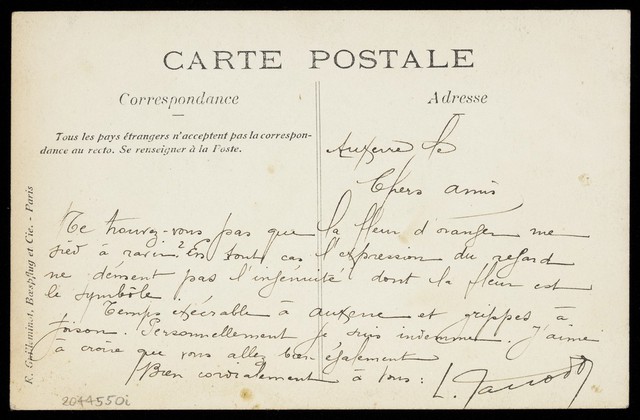 CARTE POSTALE
Correspondance
Adresse
Tous les pays étrangers n'acceptent pas la correspon-
dance au recto. Se renseigner à la Poste.
Auxerre le
Chers amis
Ne trouvez-vous pas que la fleur d'oranger me
sied à ravir? En tout cas l'expression du regard
ne dément pas l'ingénuité dont la fleur est
le symbole.
Temps exécrable à Auxerre et grippes à
foison. Personnellement je suis indemne. J'aime
à croire que vous allez bien également
Bien cordialement à tous:
R. Guilleminot, Bœspflug et Cie. - Paris
2044550i